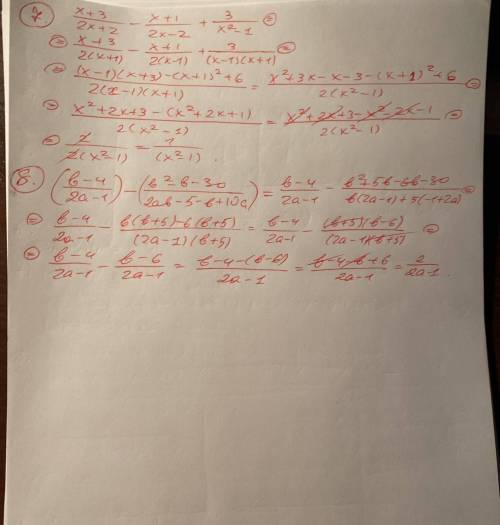 7. (x+3)/(2x+2) - (x+1)/(2x-2) + 3/(x²-1) =
= (x+3)/(2(x+1)) - (x+1)/(2(x-1)) + 3/((x-1)(x+1)) =
= ((x-1)(x+3)-(x+1)²+6)/(2(x-1)(x+1)) = (x²+3x-x-3-(x+1)²+6)/(2(x²-1)) =
= (x²+2x+3-(x²+2x+1))/(2(x²-1)) = (x²+2x+3-x²-2x-1)/(2(x²-1)) =
= 2/(2(x²-1)) = 1/(x²-1).
8. ((b-4)/(2a-1)) - ((b²-b-30)/(2ab-5-b+10a)) = (b-4)/(2a-1) - (b²+5b-6b-30)/(b(2a-1)+5(-1+2a)) =
= (b-4)/(2a-1) - (b(b+5)-6(b+5))/((2a-1)(b+5)) = (b-4)/(2a-1) - ((b+5)(b-6))/((2a-1)(b+5)) =
= (b-4)/(2a-1) - (b-6)/(2a-1) = (b-4-(b-6))/(2a-1) = (b-4-b+6)/(2a-1) = 2/(2a-1).